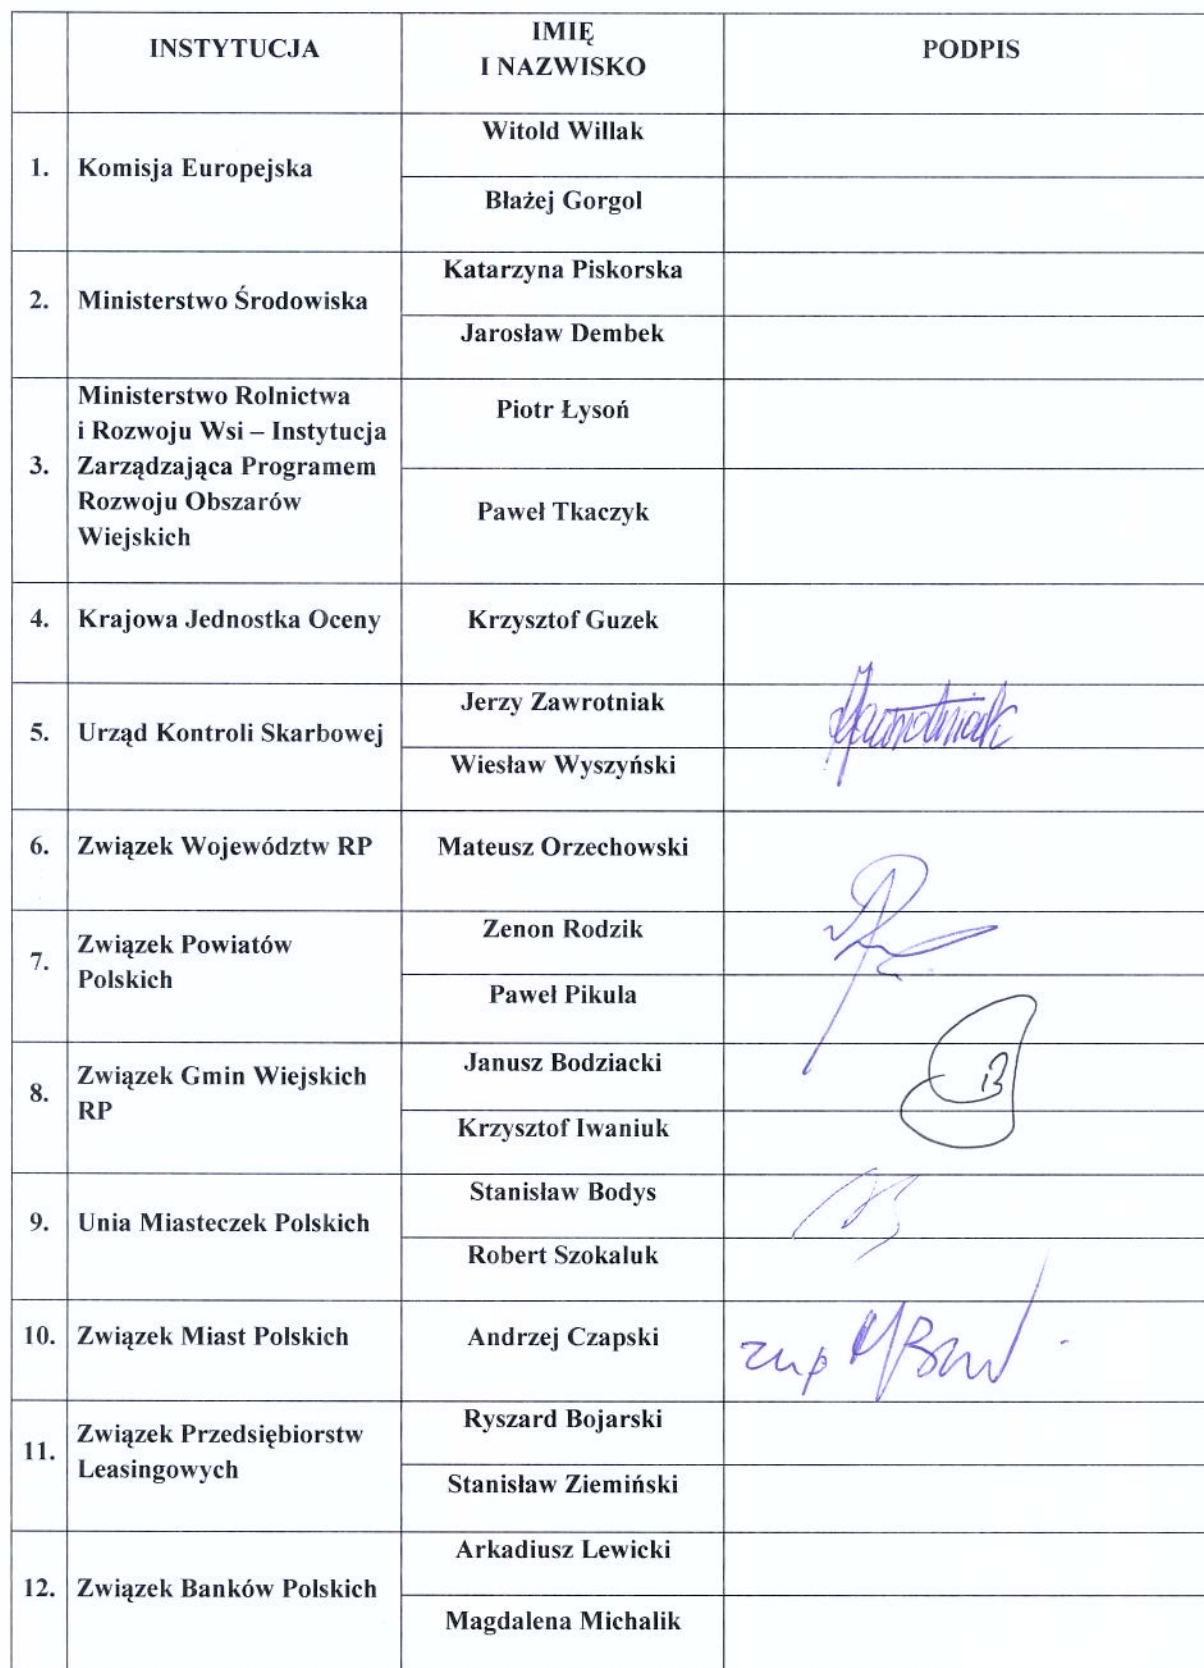 INSTYTUCJA
IMIĘ
I NAZWISKO
PODPIS
1.
Komisja Europejska
Witold Willak
Błażej Gorgol
2.
Ministerstwo Środowiska
Katarzyna Piskorska
Jarosław Dembek
3.
Ministerstwo Rolnictwa
i Rozwoju Wsi – Instytucja
Zarządzająca Programem
Rozwoju Obszarów
Wiejskich
Piotr Łysoń
Paweł Tkaczyk
4.
Krajowa Jednostka Oceny
Krzysztof Guzek
5.
Urząd Kontroli Skarbowej
Jerzy Zawrotniak
Wiesław Wyszyński
6.
Związek Województw RP
Mateusz Orzechowski
7.
Związek Powiatów
Polskich
Zenon Rodzik
Paweł Pikula
8.
Związek Gmin Wiejskich
RP
Janusz Bodziacki
Krzysztof Iwaniuk
9.
Unia Miasteczek Polskich
Stanisław Bodys
Robert Szokaluk
10.
Związek Miast Polskich
Andrzej Czapski
11.
Związek Przedsiębiorstw
Leasingowych
Ryszard Bojarski
Stanisław Ziemiński
12.
Związek Banków Polskich
Arkadiusz Lewicki
Magdalena Michalik